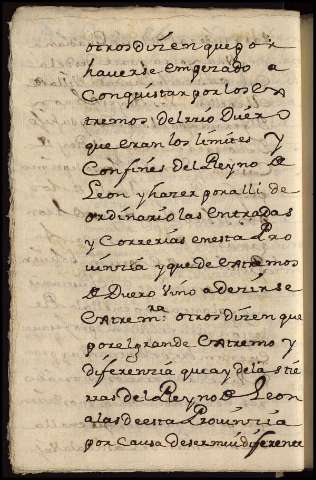 otros dizen que por
haverse empezado a
Conquistar por los Ex
tremos del rio Duero
que eran los limites y
Confines del Reyno de
Leon y hazer por alli de
ordinario las entradas
y Correrias en esta Pro
vinzia y que de extremos
de Duero vino a dezirse
extremra. otros dizen que
por el grande extremo y
diferenzia que ay de las tie
rras del Reyno de Leon
a las de esta Provinzia
por causa de ser mui diferente